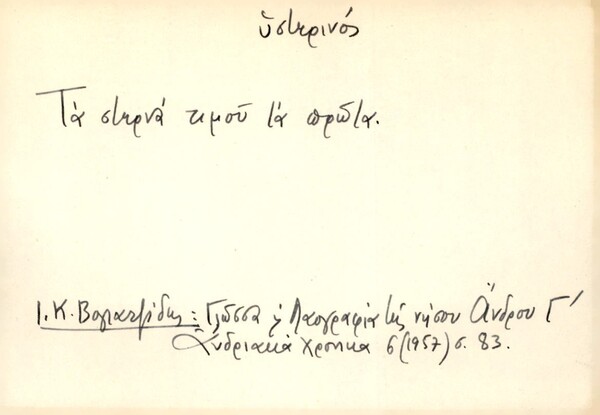 ὑστερινός
Τὰ στερνά τιμοῦ τά πρῶτα.
Ι. Κ. Βογιατζίδης: Γλῶσσα ϗ Λαογραφία τῆς νήσου Ἄνδρου Γ'
Ἀνδριακά Χρονικα 6 (1957) σ. 83.